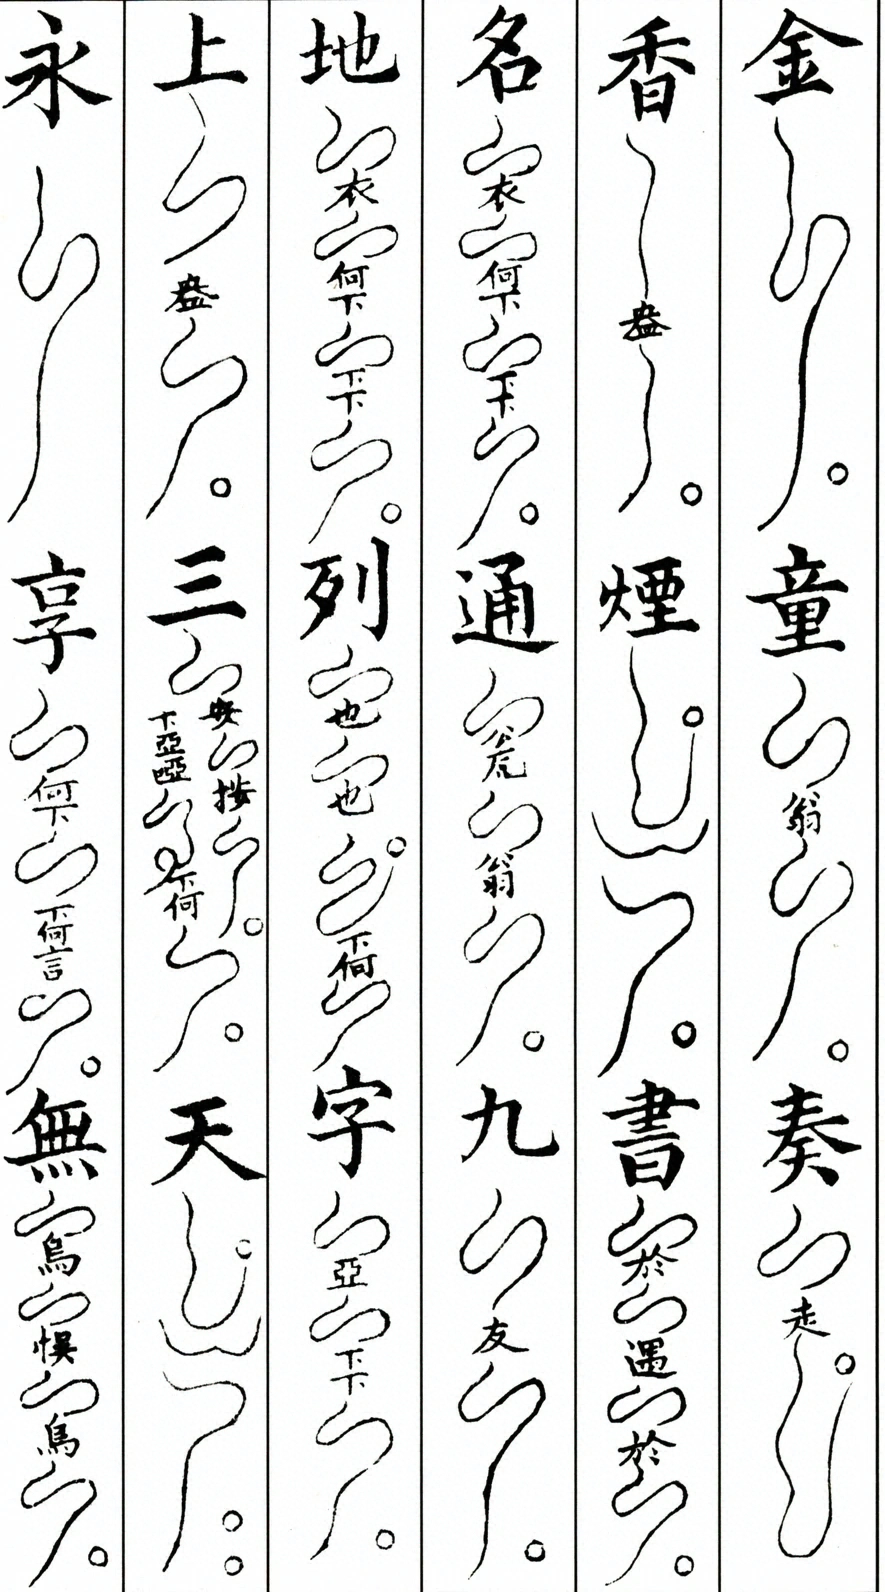 金童翁奏走
香盎煙書於遇於
名衣何下下下通翁九友
地衣何下下下列也也下何字亞下下
上盎三安按下亞啞下何天
永享何下下何言無烏悞烏